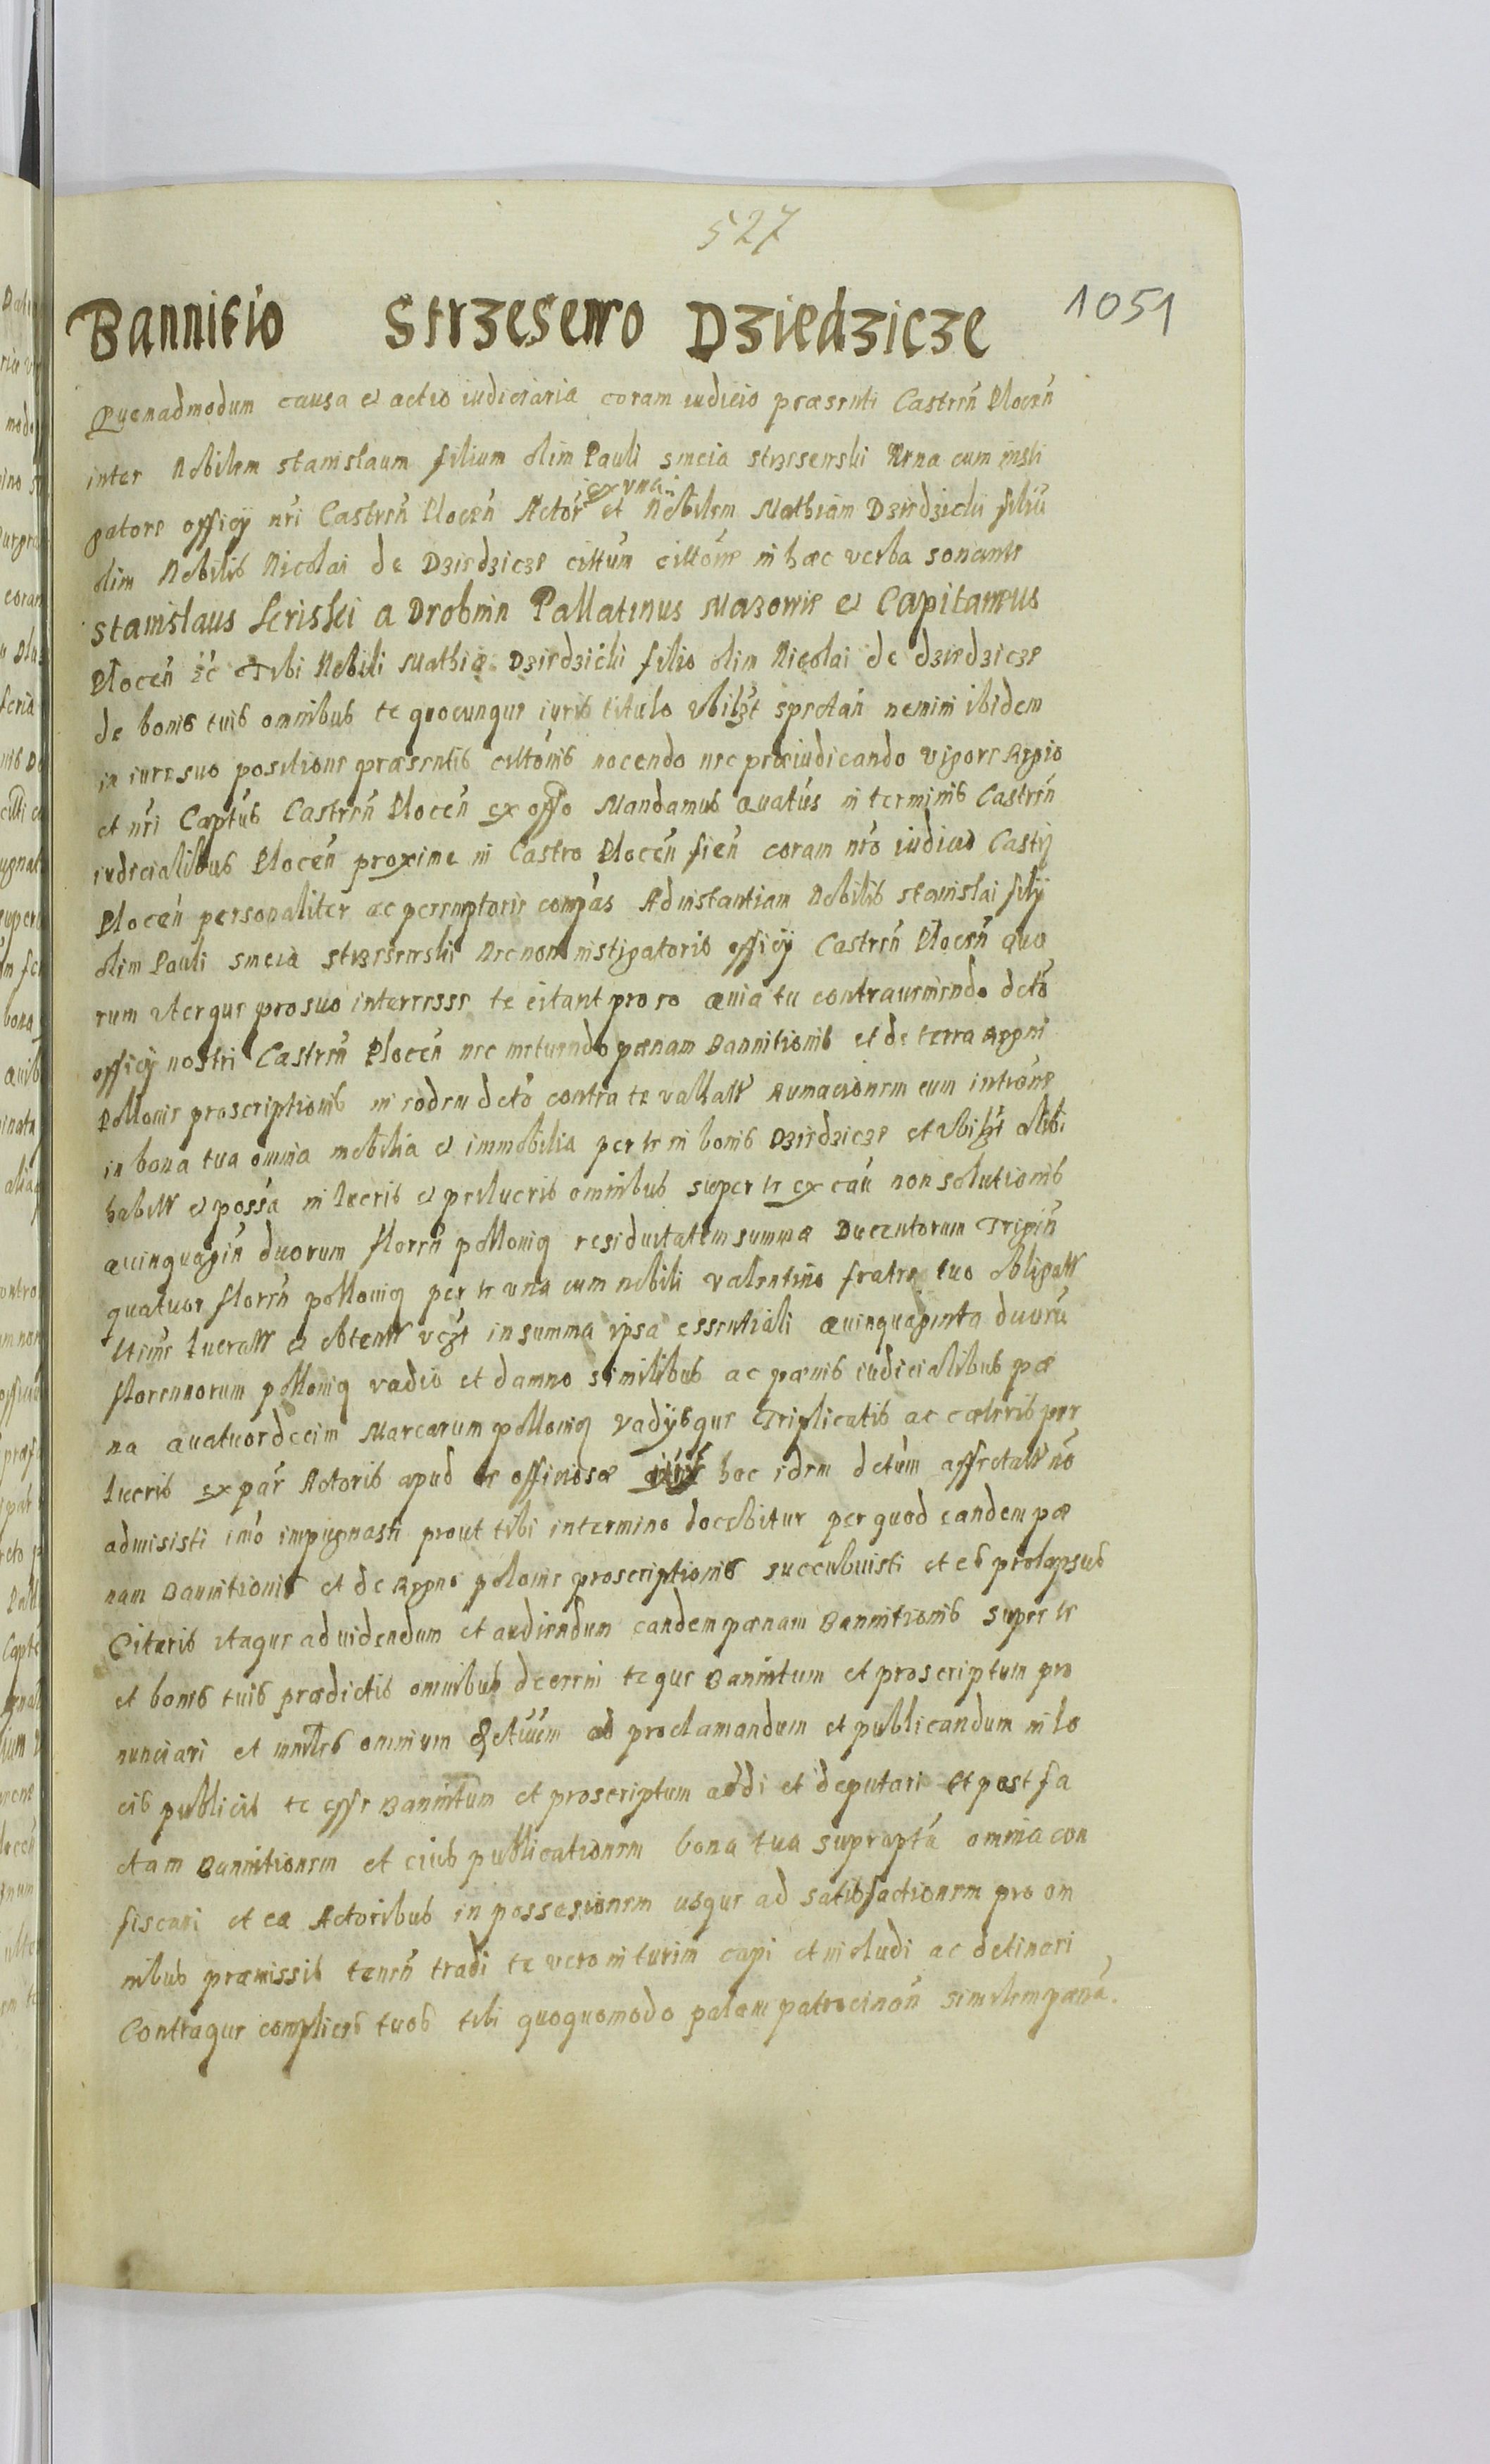 527
1051
Bannitio Strzesewo Dziedzicze
Quemadmodum causa et actio iudiciaria coram iudicio præsenti Castren̄ Plocen̄
inter Nobilem stanislaum filium olim Pauli smeia strzesewski una cum insti
ex vna:
gatore officij nr̄i Castren̄ Plocen̄ Actor̄ et Nobilem Mathiam Dziedzicki filiū
olim Nobilis Nicolai de Dziedzicze cittūm cittōne in hæc verba sonante
Stanislaus Kriski a Drobnin Pallatinus Mazowie et Capitaneus
Plocen̄ &c Tibi Nobili Mathiæ Dziedzicki filio olim Nicolai de dziedzicze
de bonis tuis omnibus te quocunque iuris titulo vbilȝt spectan̄ nemini ibidem
in iure suo positione præsentis cittōnis nocendo nec præiudicando vigore Regio
et nr̄i Captūs Castren̄ Plocen̄ ex offo Mandamus quatūs in terminis Castren̄
iudicialibus Plocen̄ proxime in Castro Plocen̄ fien̄ coram nrō iudicio Castrj
Plocen̄ personaliter ac peremptorie compās Ad instantiam Nobilis stanislai filij
olim Pauli smeia strzesewski necnon instigatoris officij Castren̄ Plocen̄ quo
rum uterque pro suo interesse te citant pro eo quia tu contraueniendo dctō
officij nostri Castren̄ Plocen̄ nec metuendo pœnam Bannitionis et de terra Regni
Pollonie proscriptionis in eodem dctō contra te vallatt Rumacionem cum intrōne
in bona tua omnia mobilia et immobilia per te in bonis Dziedzicze et vbilȝt alibi
habitt et possā in lucris et perlucris omnibus super te ex caū non solutionis
quinquagin̄ duorum floren̄ polloniq residuitatem summæ Ducentorum Trigin̄
quatuor floren̄ polloniq per te una cum nobili valentino fratre tuo obligatt
lucratt et obtentt vȝt in summa ipsa essentiali quinquaginta duorū
florennorum polloniq vadio et damno similibus ac pœnis iudicialibus pœ
na quatuordecim Marcarum polloniq vadijsque Triplicatis ac cæteris per
lucris ex par̄ Actoris apud te officiose hoc idem dctūm affectatt nō
admisisti imō impugnasti prout tibi in termino docebitur per quod eandem pœ
nam Bannitionis et de Regno polonie proscriptionis succubuisti et es prolapsus
Citaris itaque ad uidendum et audiendum eandem pœnam Bannitionis super te
et bonis tuis prædictis omnibus decerni teque Bannitum et proscriptum pro
nunciari et omnium ad proclamandum et publicandum in lo
cis publicis te esse Bannitum et proscriptum addi et deputari Et post fa
ctam Bannitionem et eius publicationem bona tua supraptā omnia con
fiscari et ea Actoribus in possesionem usque ad satisfactionem pro om
nibus præmissis tenen̄ tradi te vero in turim capi et includi ac detineri
Contraque complices tuos tibi quoquomodo palam patrocinan̄ similem pœnā.